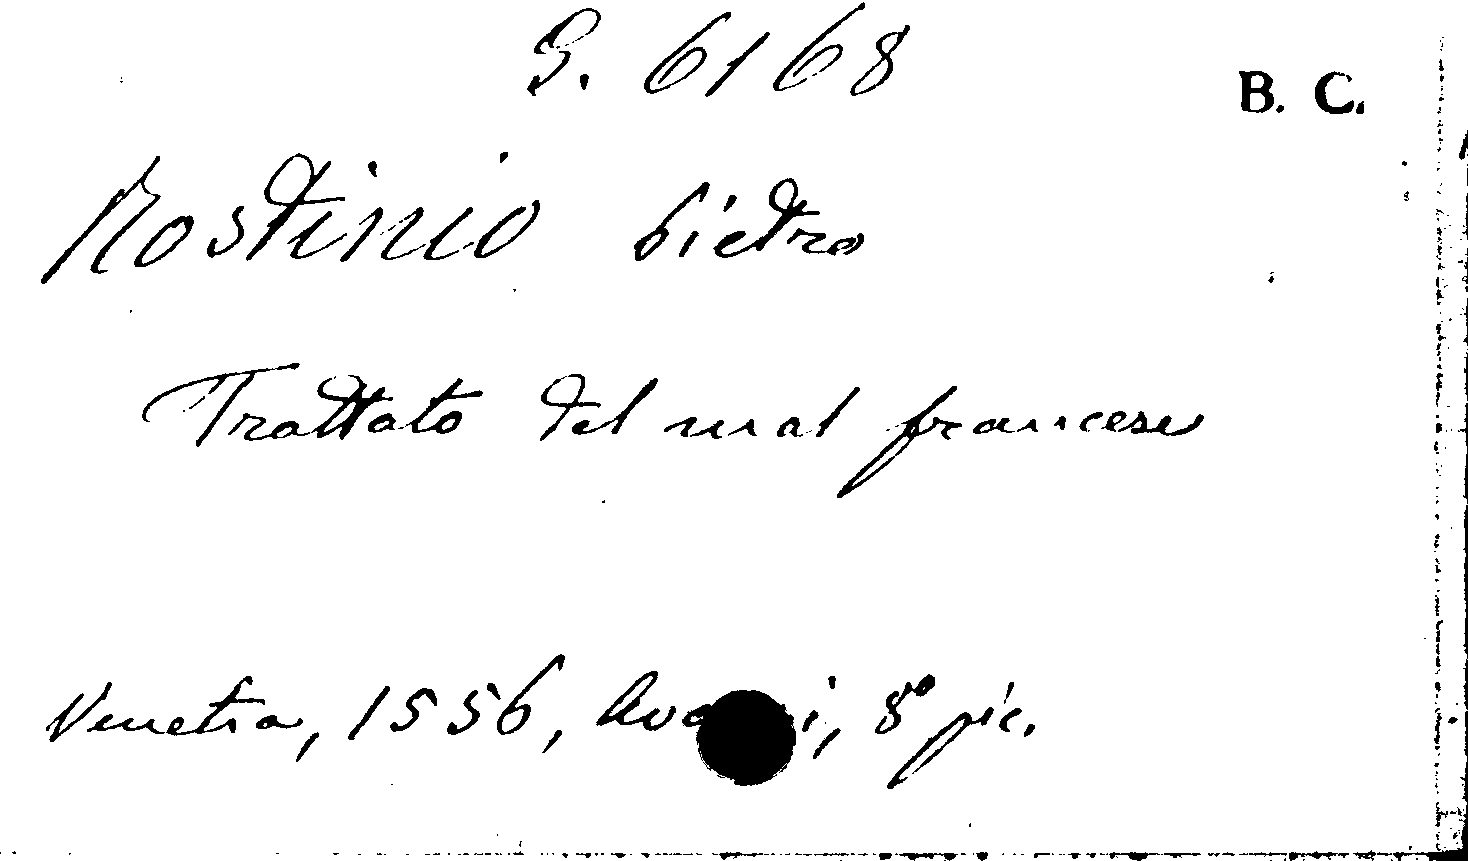 G. 6168
B. C.
Rostinio Pietro
Trattato del mal francese
Venetia, 1556, 8° pic.